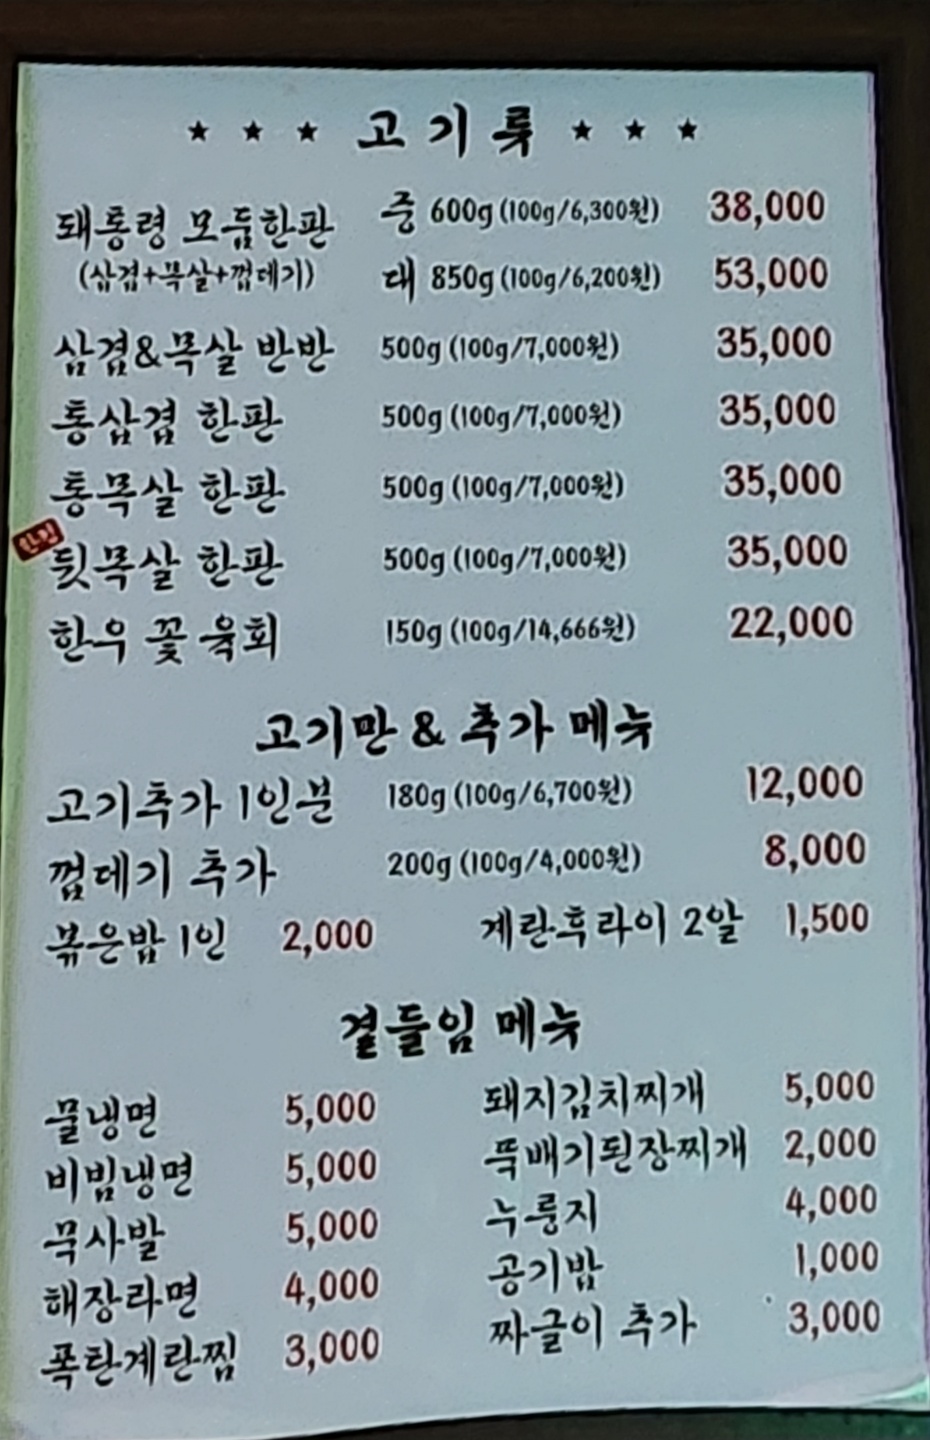 ★ ★ ★ 고기류 ★ ★ ★
돼통령 모둠한판 중 600g (100g/6,300원) 38,000
(삼겹+목살+껍데기) 대 850g (100g/6,200원) 53,000
삼겹&목살 반반 500g (100g/7,000원) 35,000
통삼겹 한판 500g (100g/7,000원) 35,000
통목살 한판 500g (100g/7,000원) 35,000
뒷목살 한판 500g (100g/7,000원) 35,000
한우 꽃 육회 150g (100g/14,666원) 22,000
고기만 & 추가 메뉴
고기추가 1인분 180g (100g/6,700원) 12,000
껍데기 추가 200g (100g/4,000원) 8,000
볶은밥 1인 2,000 계란후라이 2알 1,500
곁들임 메뉴
물냉면 5,000 돼지김치찌개 5,000
비빔냉면 5,000 뚝배기된장찌개 2,000
묵사발 5,000 누룽지 4,000
해장라면 4,000 공기밥 1,000
폭탄계란찜 3,000 짜글이 추가 3,000